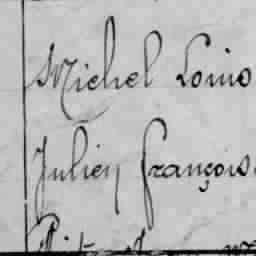 Michel Louis
Julien François